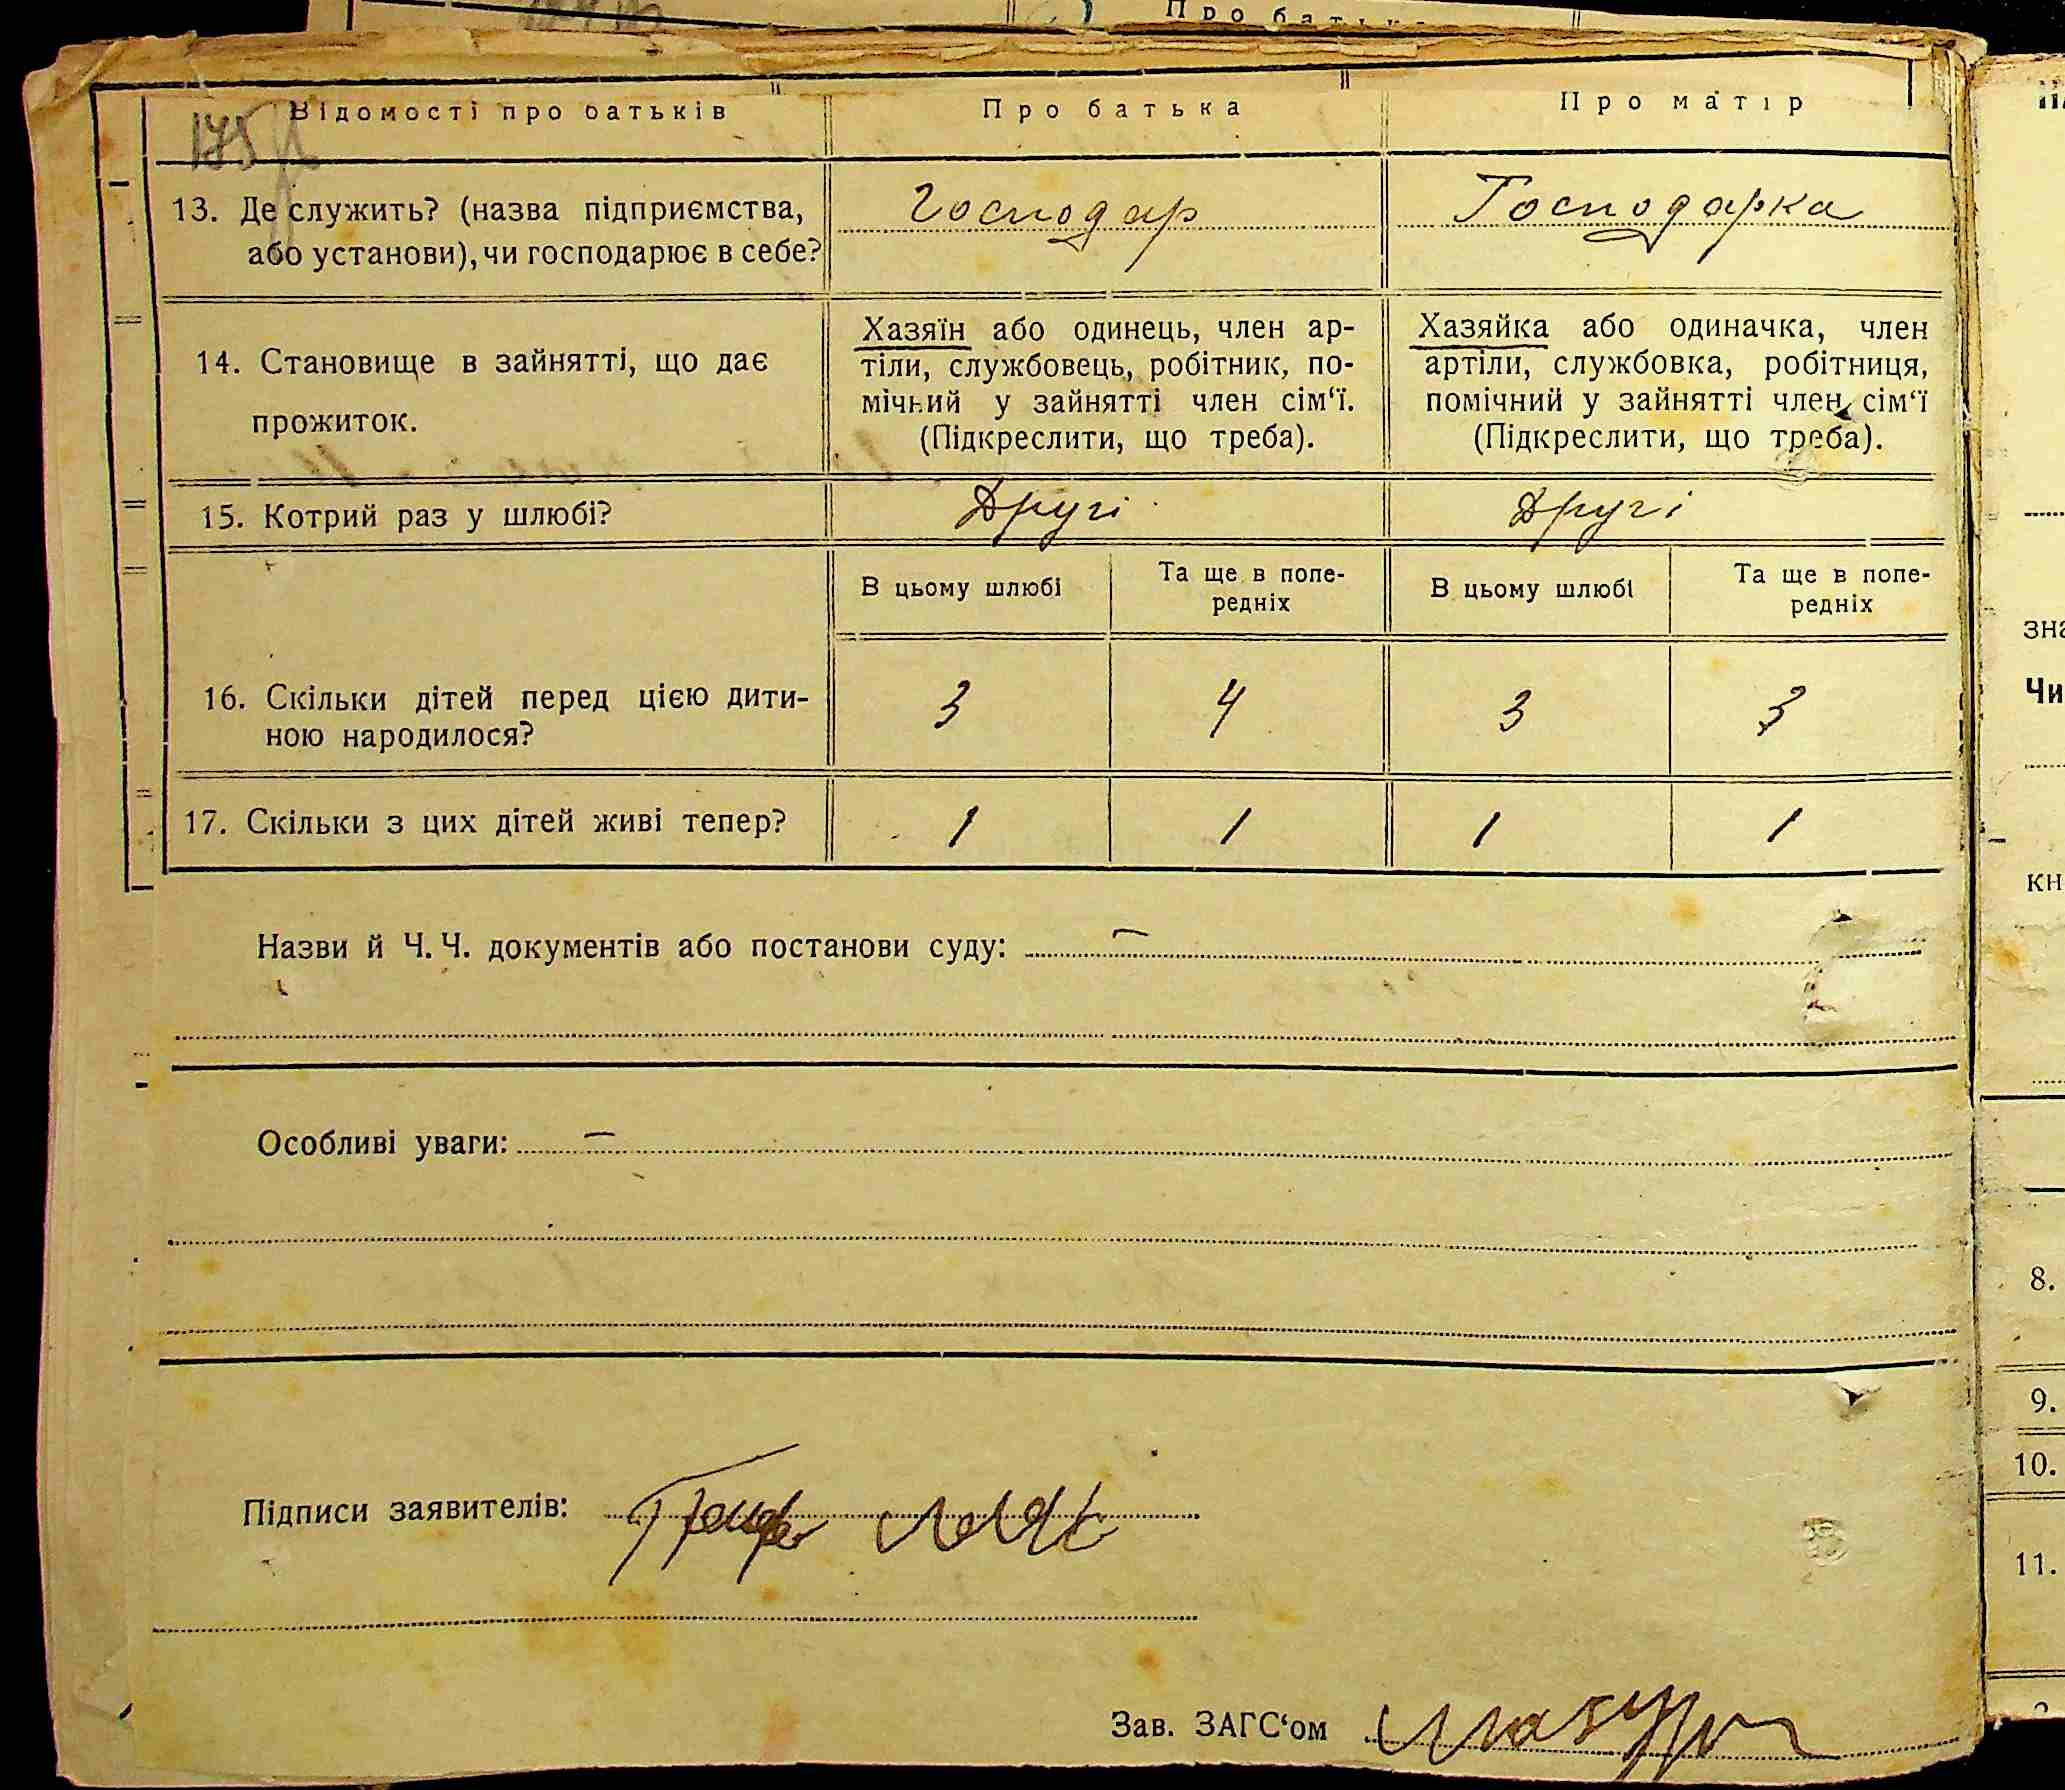 Про батька
Відомості про батьків Про батька Про матір
13. Де служить? (назва підприємства, Господар Господарка
або установи), чи господарює в себе?
14. Становище в зайнятті, що дає
прожиток.
Хазяїн або одинець, член ар-
тіли, службовець, робітник, по-
мічний у зайнятті член сім‘ї.
(Підкреслити, що треба).
Хазяйка або одиначка, член
артіли, службовка, робітниця,
помічний у зайнятті член сім‘ї
(Підкреслити, що треба).
15. Котрий раз у шлюбі? Другі Другі
В цьому шлюбі Та ще в попе-
редніх В цьому шлюбі Та ще в попе-
редніх
16. Скільки дітей перед цією дити- 3 4 3 3
ною народилося?
17. Скільки з цих дітей живі тепер? 1 1 1 1
Назви й Ч. Ч. документів або постанови суду: —
Особливі уваги: —
Підписи заявителів:
Зав. ЗАГС‘ом
8.
9.
10.
11.